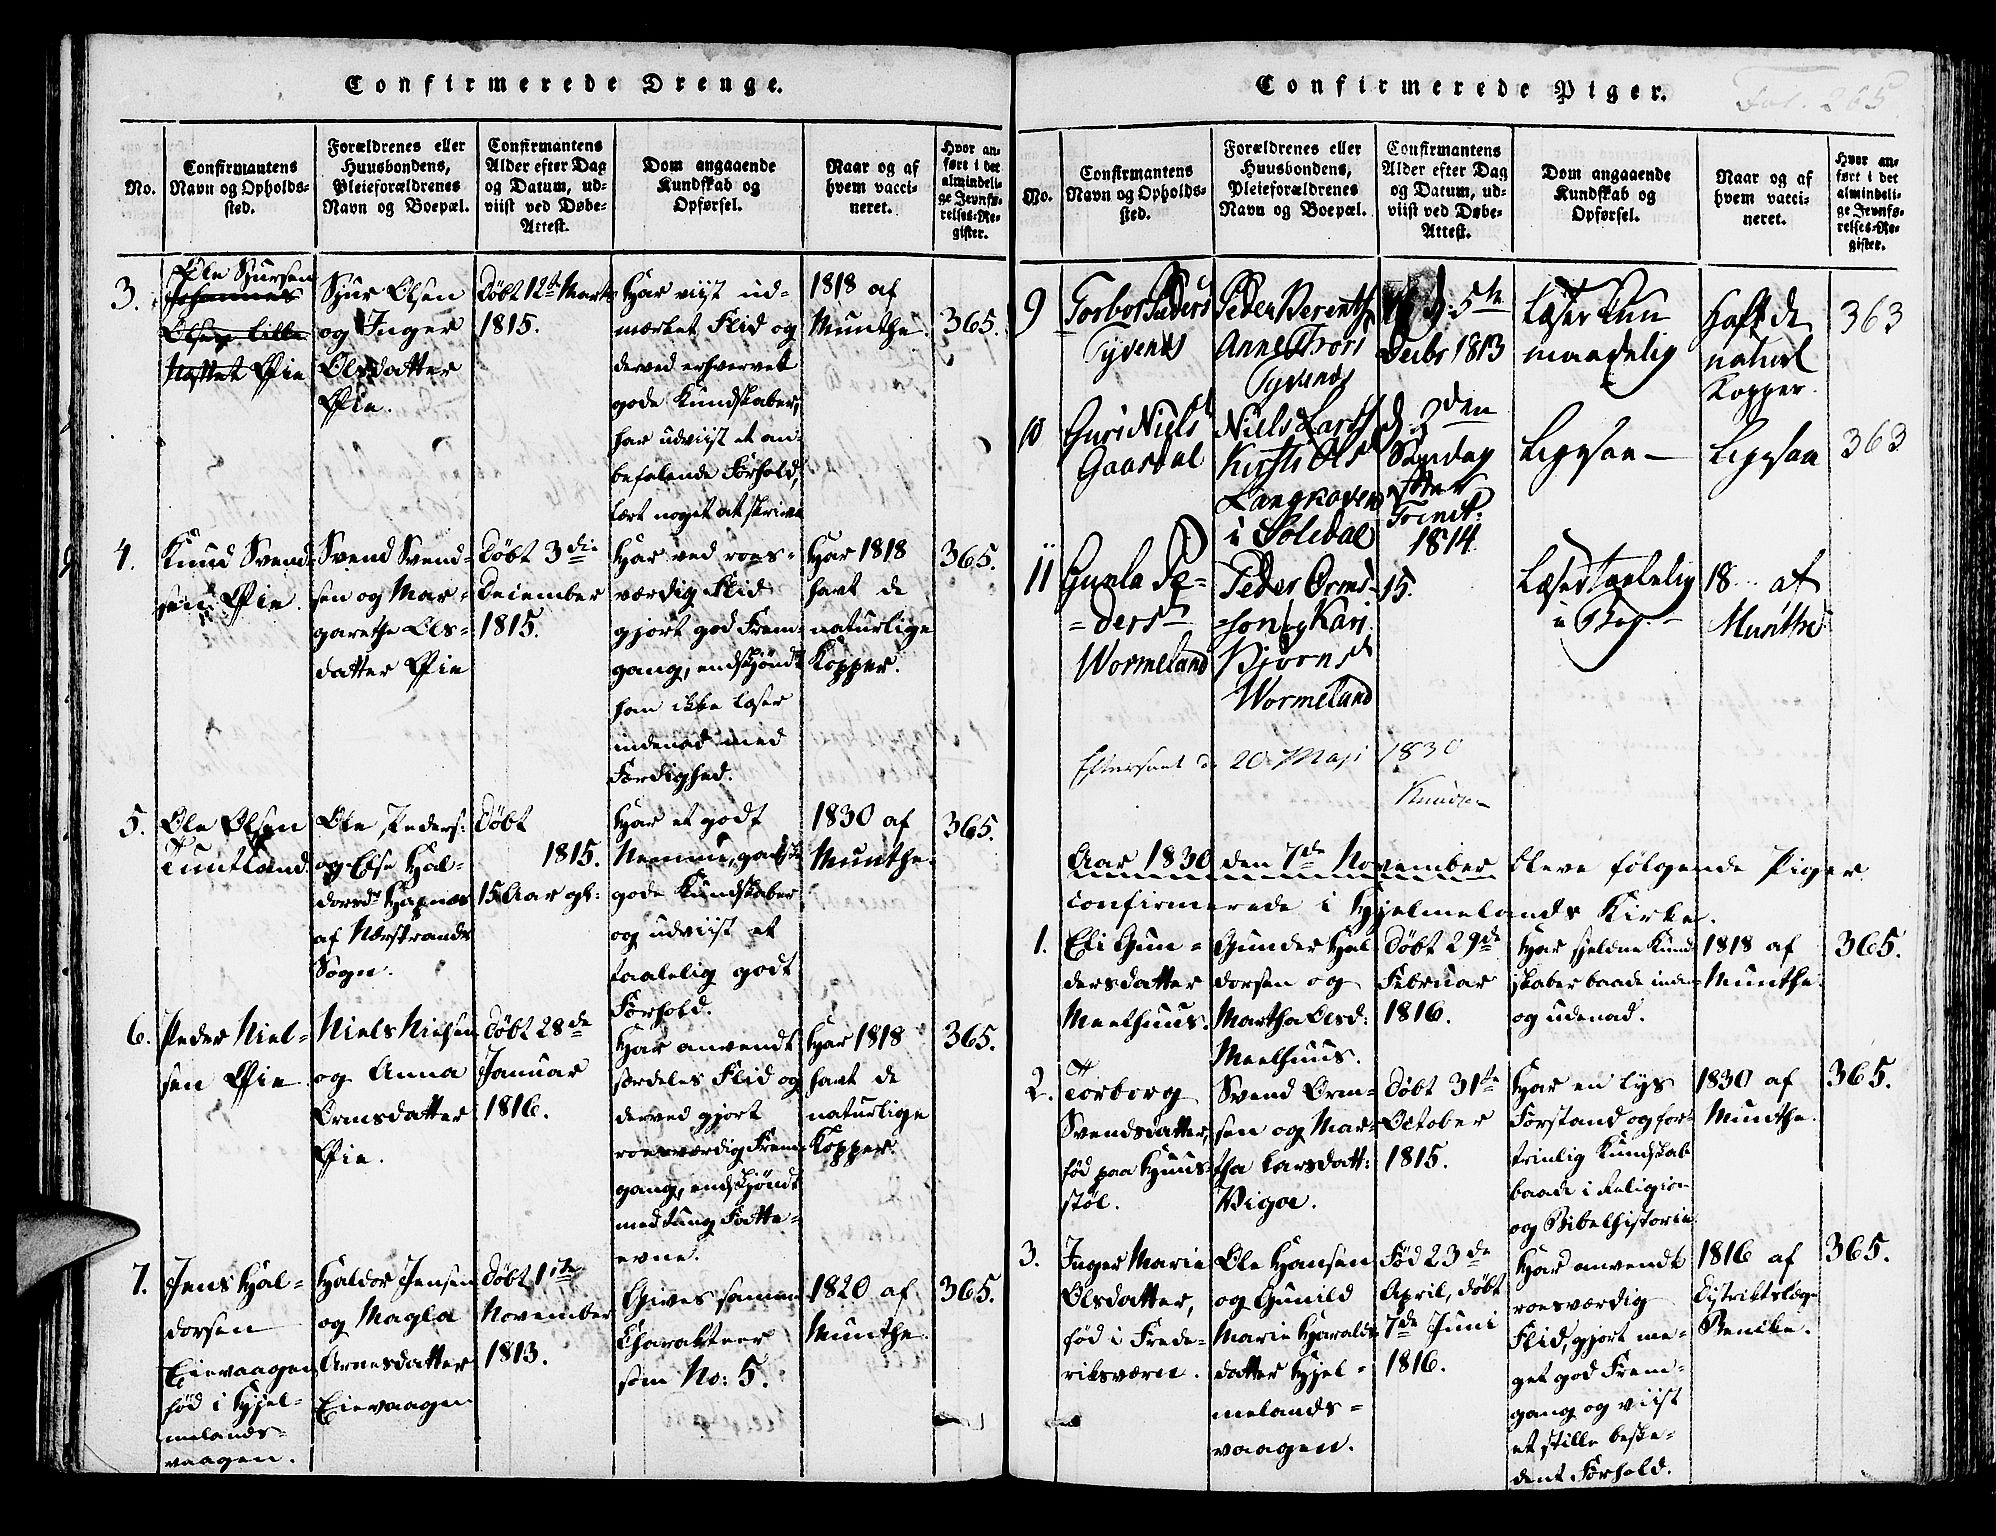 Confirmerede Drenge.
No.
Confirmantens
Navn og Opholds-
sted.
Forældrenes eller
Huusbondens,
Pleieforældrenes
Navn og Boepæl.
Confirmantens
Alder efter Dag
og Datum, ud-
viist ved Døbe-
Attest.
Dom angaaende
Kundskab og
Opførsel.
Naar og af
hvem vacci-
neret.
Hvor an-
ført i det
almindeli-
ge Jevnfø-
relses-Re-
gister.
3.
Ole Sjursen
Johannes
Olsen
Øie
Sjur Olsen
og Inger
Olsdatter
Øie.
Døbt 12te Marts
1815.
Har viist ud-
mærket Flid og
derved erhvervet
gode Kundskaber,
har udviist et an-
befalende Forhold,
lært noget at skrive
1818 af
Munthe.
365.
4.
Knud Svend-
sen Øie.
Svend Svend-
sen og Mar-
garethe Ols-
datter Øie
Døbt 3die
December
1815.
Har ved roes-
værdig Flid
gjort god Frem-
gang, endskjøndt
han ikke læser
indenad med
Færdighed.
Har 1818
havt de
naturlige
Kopper.
365.
5.
Ole Olsen
Tuntland.
Ole Peders:
og Else Hal-
dorsd: Hapnæs
af Nærstrands
Sogn.
Døbt
1815.
15 Aar gl:
Har et godt
Nemme, ganske
gode Kundskaber
og udviist et
taalelig godt
Forhold.
1830 af
Munthe.
365.
6.
Peder Niel-
sen Øie
Niels Nielsen
og Anna
Ormsdatter
Øie.
Døbt 28de
Januar
1816.
Har anvendt
særdeles Flid og
derved gjort
roesværdig Frem-
gang, endskjøndt
med tung Fatte-
evne.
Har 1818
havt de
naturlige
Kopper.
365.
7.
Jens Hal-
dorsen
Eievaagen
fød i Hjel-
melands-
vaagen.
Haldor Jensen
og Magla
Arnesdatter
Eievaagen
Døbt 1ste
November
1813.
Gives samme
Charakteer
som No: 5.
1820 af
Munthe.
365.
Confirmerede Piger.
Fol. 265
No.
Confirmantens
Navn og Opholds-
sted.
Forældrenes eller
Huusbondens,
Pleieforældrenes
Navn og Boepæl.
Confirmantens
Alder efter Dag
og Datum, ud-
viist ved Døbe-
Attest.
Dom angaaende
Kundskab og
Opførsel.
Naar og af
hvem vacci-
neret.
Hvor an-
ført i det
almindeli-
ge Jevnfø-
relses-Re-
gister.
9
Torbor Peders
Tytlands
Peder Berents
Anne Thors
d: 5te
Decbr 1813
Læser kun
maadelig
Haft de
naturl
Kopper.
363
10
Guri Niels
Gaasdal
Niels Lars
Kirsti Ols
i Soledal
d 2den
Søndag
efter
Trinit:
1814.
Ligesaa
Ligesaa
363
11
Gunla Pe-
=ders
Wormeland
Peder Orms-
=son og Kari
Bjørns
Wormeland
15.
Læser taalelig
i Bog.
18 af
Munthe
Efterseet d: 20 Maji 1830
Knudsen
Aar 1830 den 7de November bleve følgende Piger
confirmerede i Hjelmelands Kirke.
1.
Eli Gun-
dersdatter
Meelhuus.
Gunder Hal
dorsen og
Martha Olsd:
Meelhuus.
Døbt 29de
Februar
1816.
Har sjeldne Kund
skaber baade inden
og udenad.
1818 af
Munthe.
365.
2.
Torborg
Svendsdatter,
fød paa Huus-
støl.
Svend Orm-
sen og Mar-
tha Larsdatt:
Viga.
Døbt 31te
October
1815.
Har en lys
Forstand og for-
trinlig Kundskab
baade i Religion
og Bibelhistorie
1830 af
Munthe.
365.
3.
Inger Marie
Olsdatter,
fød i Frede-
riksværn.
Ole Hansen
og Gunild
Marie Haralds-
datter Hjel-
melands-
vaagen.
Fød 23de
April, døbt
7de Juni
1816.
Har anvendt
roesværdig
Flid, gjort me-
get god Frem-
gang og viist
et stille beske-
dent Forhold.
1816 af
Distriktslæge
Bencke.
365.